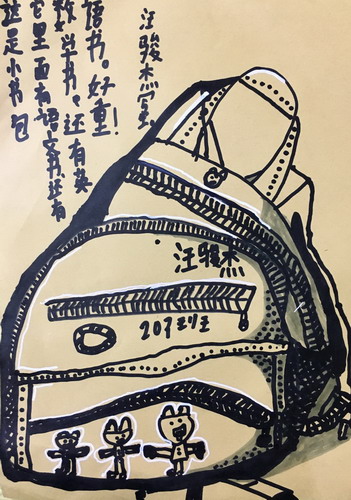 这是小书包
它里面有语文书还有
数学书，还有英
语书。好重！
汪骏杰
汪骏杰
207班